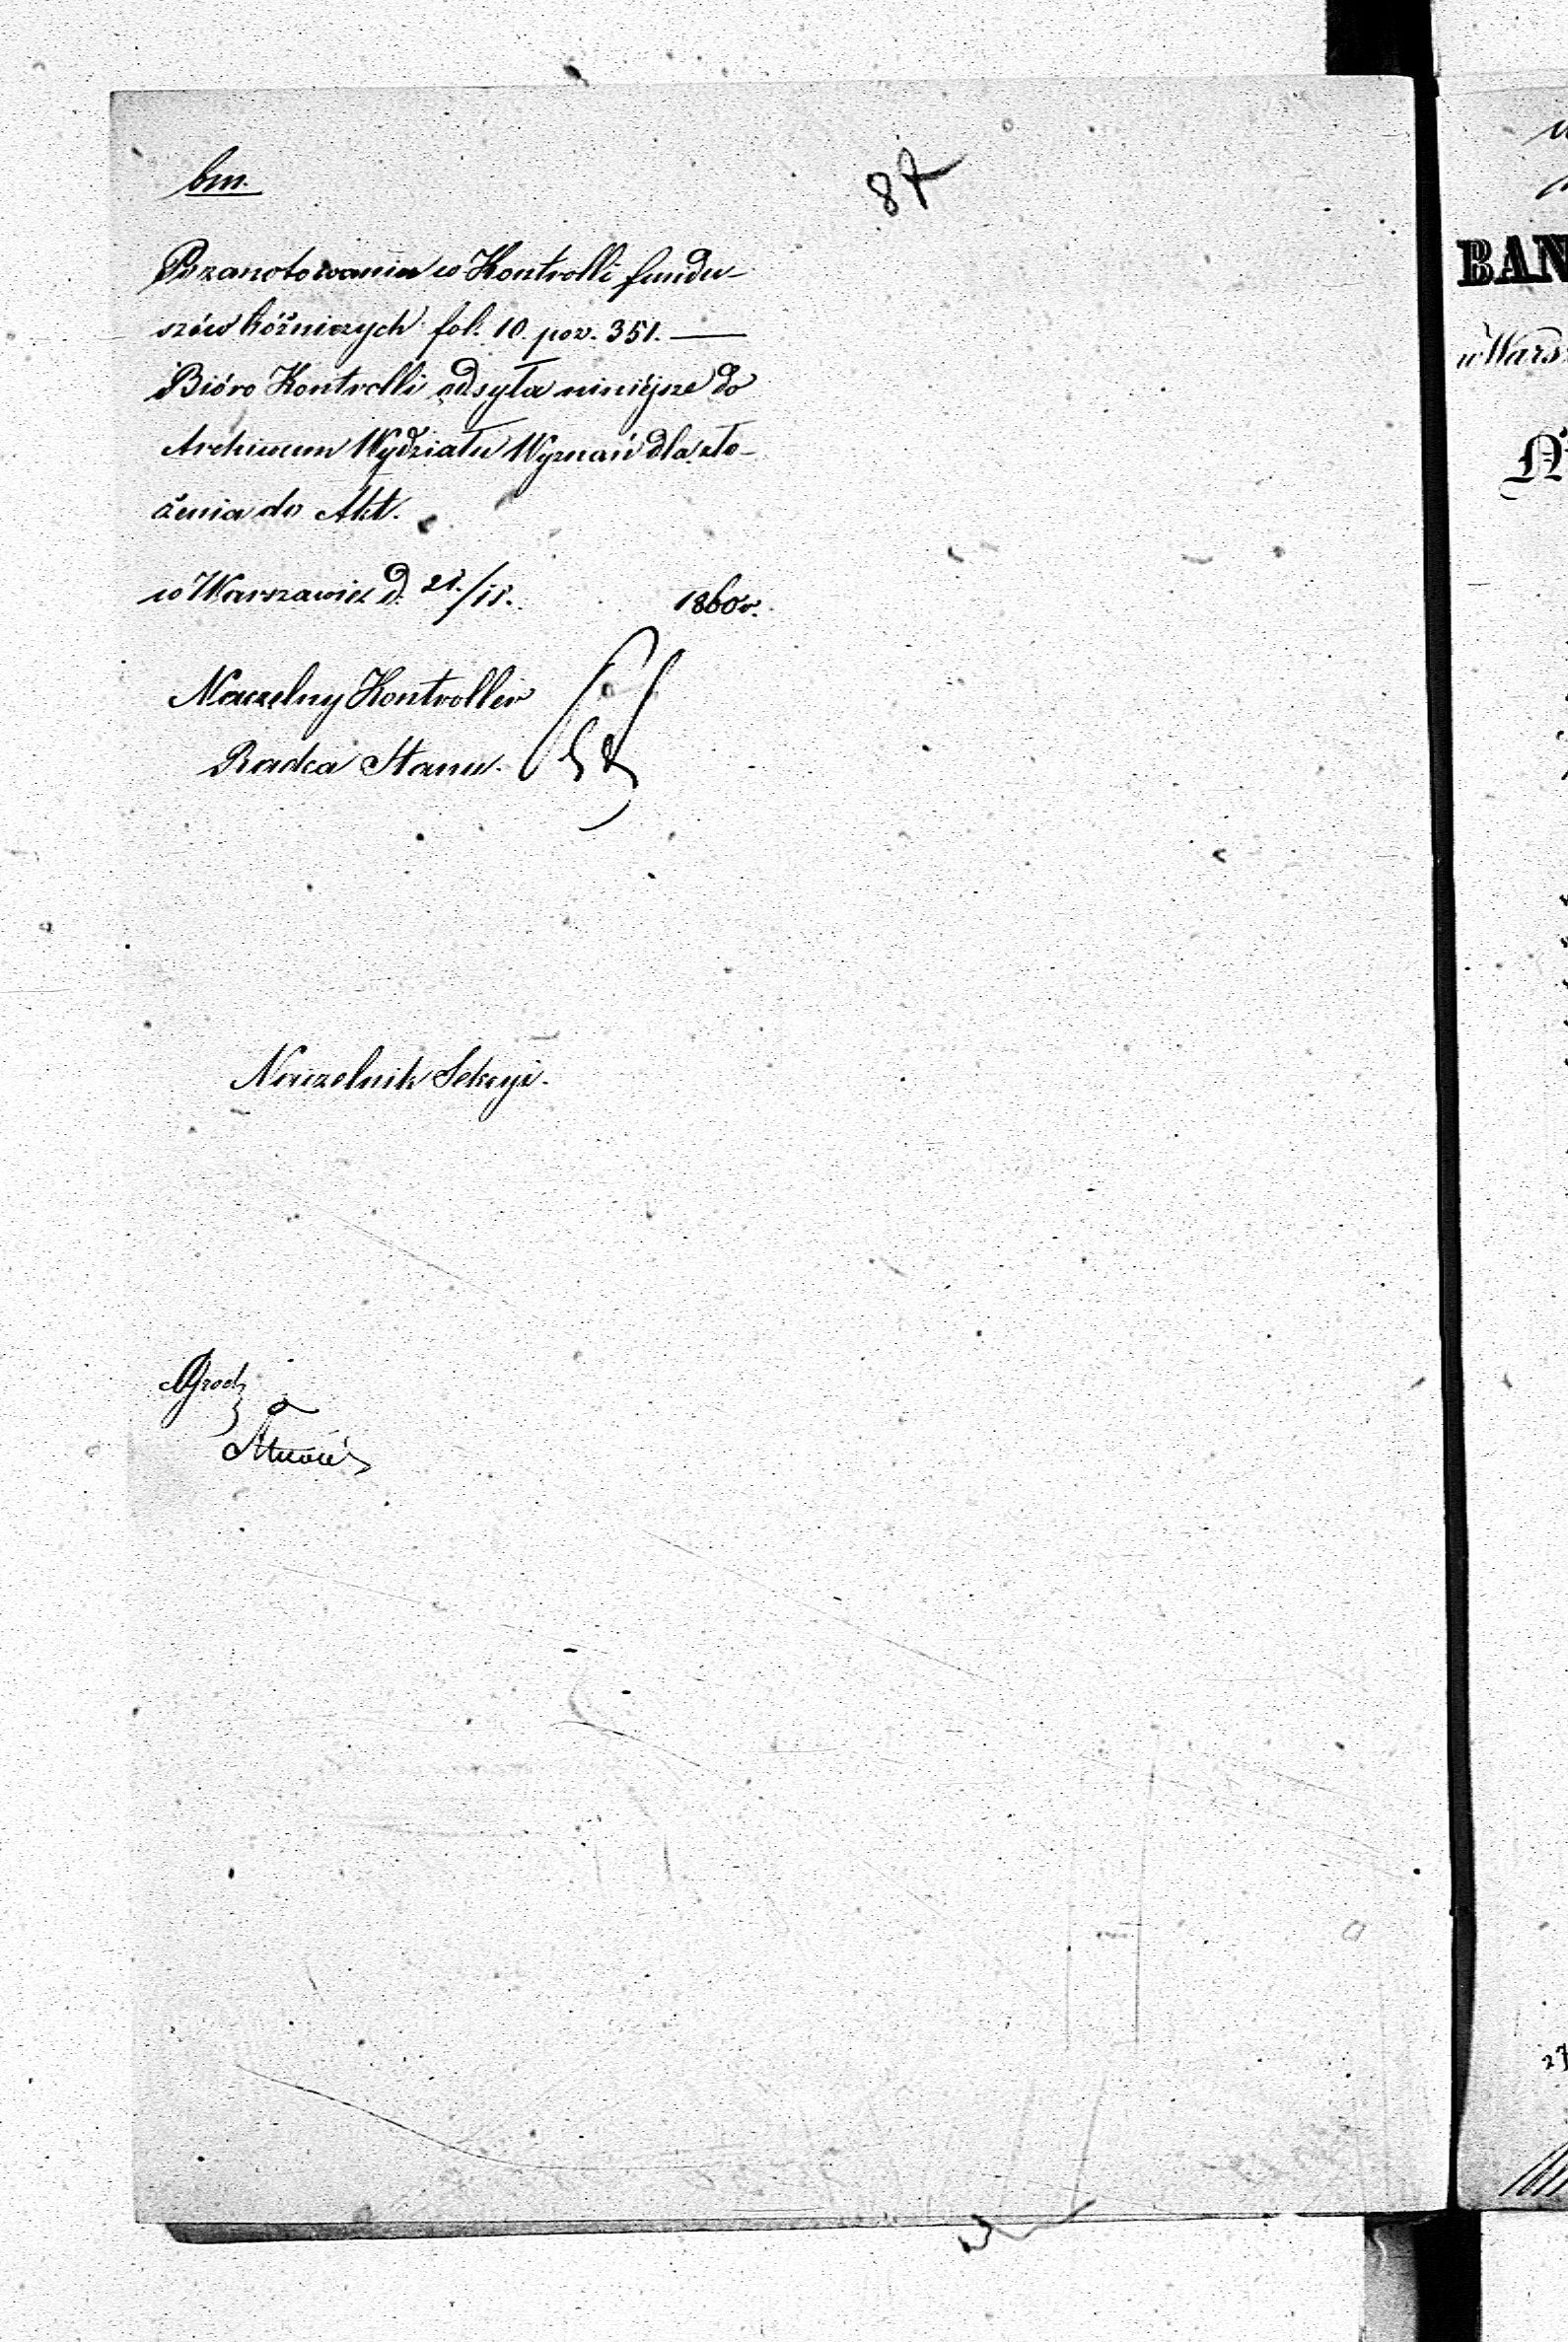 bm.
87
Po zanotowaniu w Kontrolli fundu-
szów bóżniczych fol. 10. poz. 351. —
Bióro Kontrolli odsyła niniéjsze do
Archiwum Wydziału Wyznań dla zło-
żenia do Akt.
w Warszawie d. 1860 r.
Naczelny Kontroller
Radca Stanu.
Naczelnik Sekcyi.
BAN
w Wars
N
27